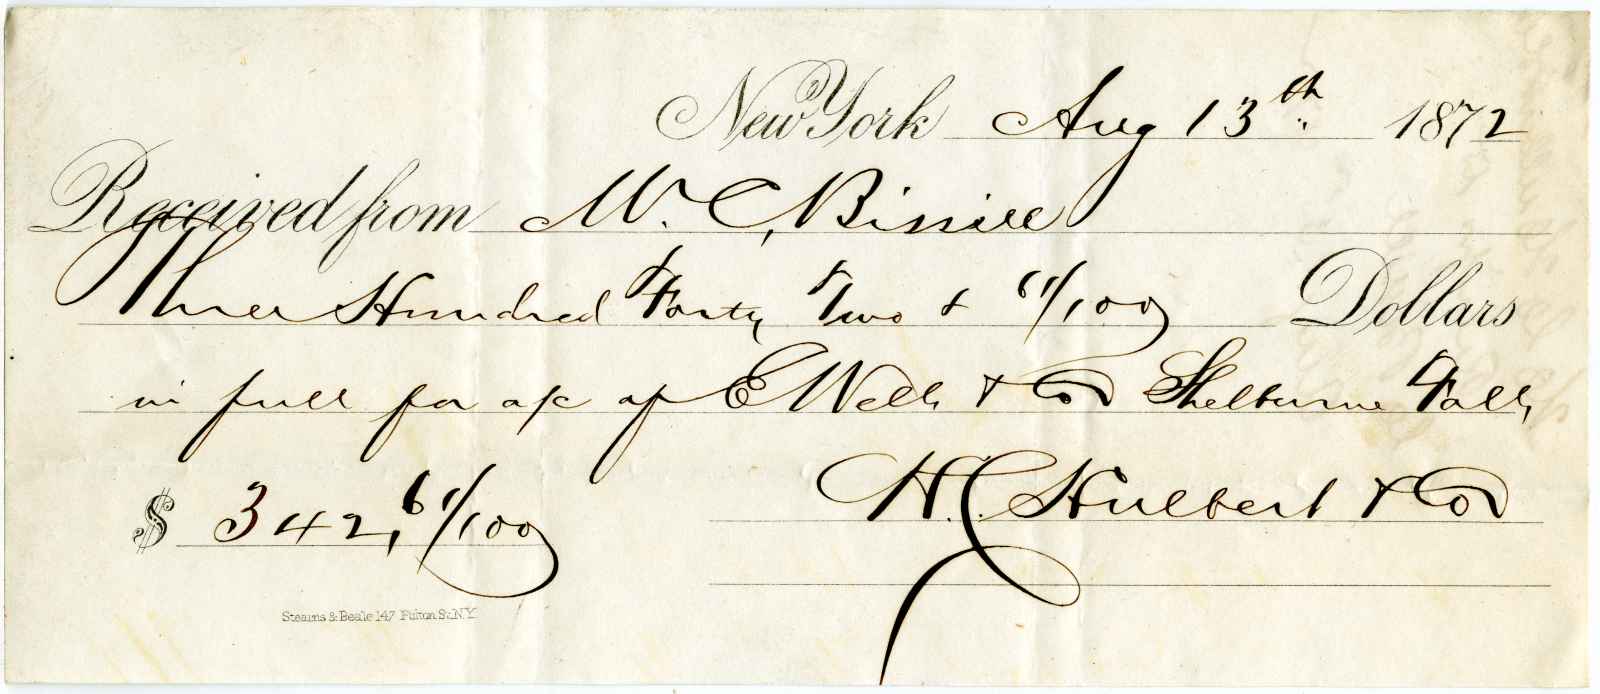 New York Aug 13th 1872
Received from W. C, Bissell
Three Hundred Forty Two & 61/100 Dollars
in full for a/c of E Wells & Co Shelburne Falls
$ 342,61/100 H. C. Hulbert & Co
Stearns & Beale 147 Fulton St. N.Y.